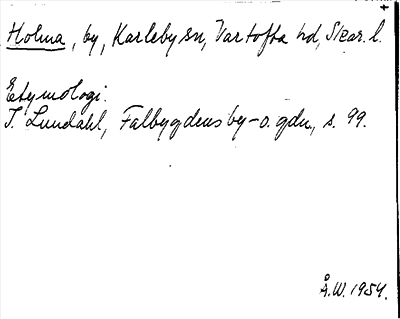 Holma, by, Karleby sn, Vartofta hd, Skar. l.
Etymologi.
I. Lundahl, Falbygdens by- o. gdn, s. 99.
Å.W. 1954.